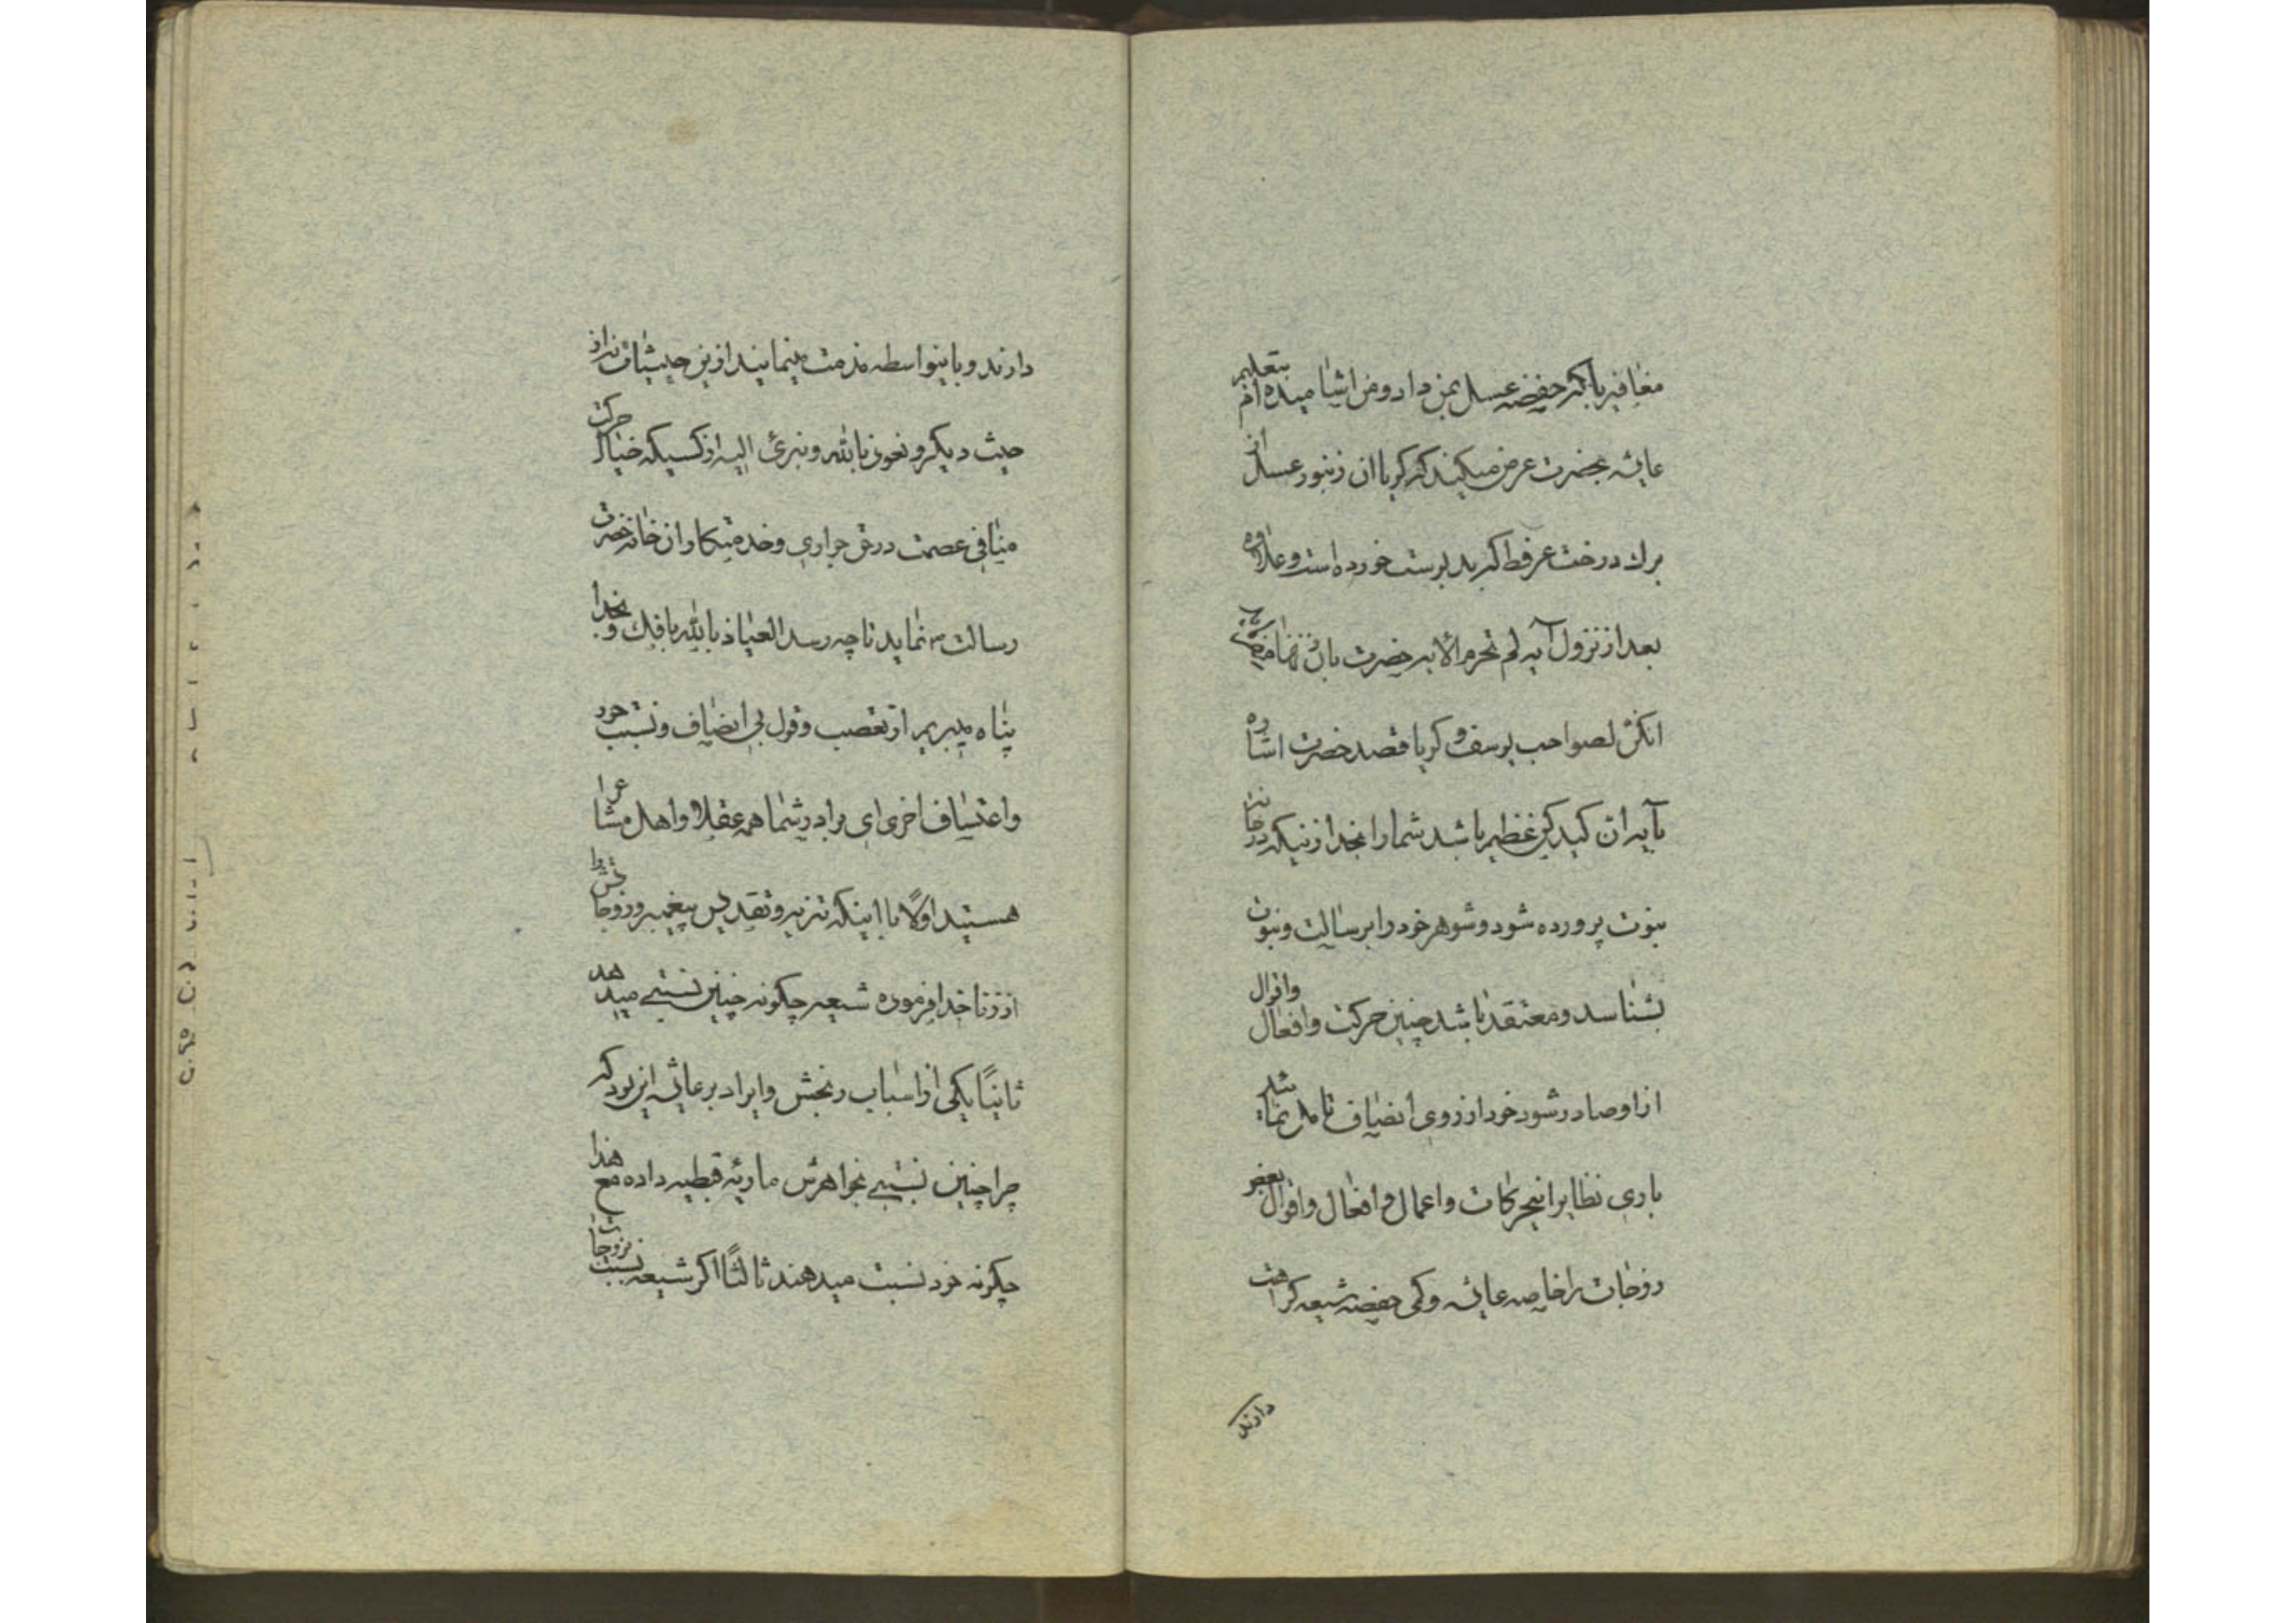 مغافیر بآنکه حفضه عسل بمن داد و من اشامیده‌ام بتعلیم
عایشه بحضرت عرض میکنند که کویا ان زنبور عسل از
برك درخت عرفط که بد بوست خورده است و علاوه
بعد از نزول آیه لم تحرم الآیه حضرت بان زنها
انکن لصواحب یوسف و کویا قصد حضرت اشاره
بآیه ان کید کن عظیم باشد شما را بخدا زنیکه در خانه
نبوت پرورده شود و شوهر خود را برسالت و نبوت
بشناسد و معتقد باشد چنین حرکت و افعال و اقوال
از او صادر شود خود از روی انصاف تامل نمائید
باری نظایر اینحرکات و اعمال و افعال و اقوال بعض
زوجات را خاصه عایشه و کمی حفضه شیعه کراهت
دارند
دارند و باینواسطه مذمت مینمایند ازین حیث نه از
حیث دیکر و نعوذ بالله و نبرئ الیه از کسیکه خیال حرکت
منافی عصمت در حق جواری و خدمتکاران خانه حضرت
رسالت نماید تا چه رسد العیاذ بالله بافك و بخدا
پناه میبریم از تعصب و قول بی انصاف و نسبت خود
و اعتساف اخری ای برادر شما همه عقلا و اهل مشاعر
هستید اولًا با اینکه تنزیه و تقدیس پیغمبر و زوجاتش را
از زنا خدا فرموده شیعه چکونه چنین نسبتی میدهد
ثانیًا یکی از اسباب رنجش و ایراد بر عایشه این بود که
چرا چنین نسبتی بخواهرش ماریه قبطیه داده مع هذا
چکونه خود نسبت میدهند ثالثًا اکر شیعه نسبت بزوجات